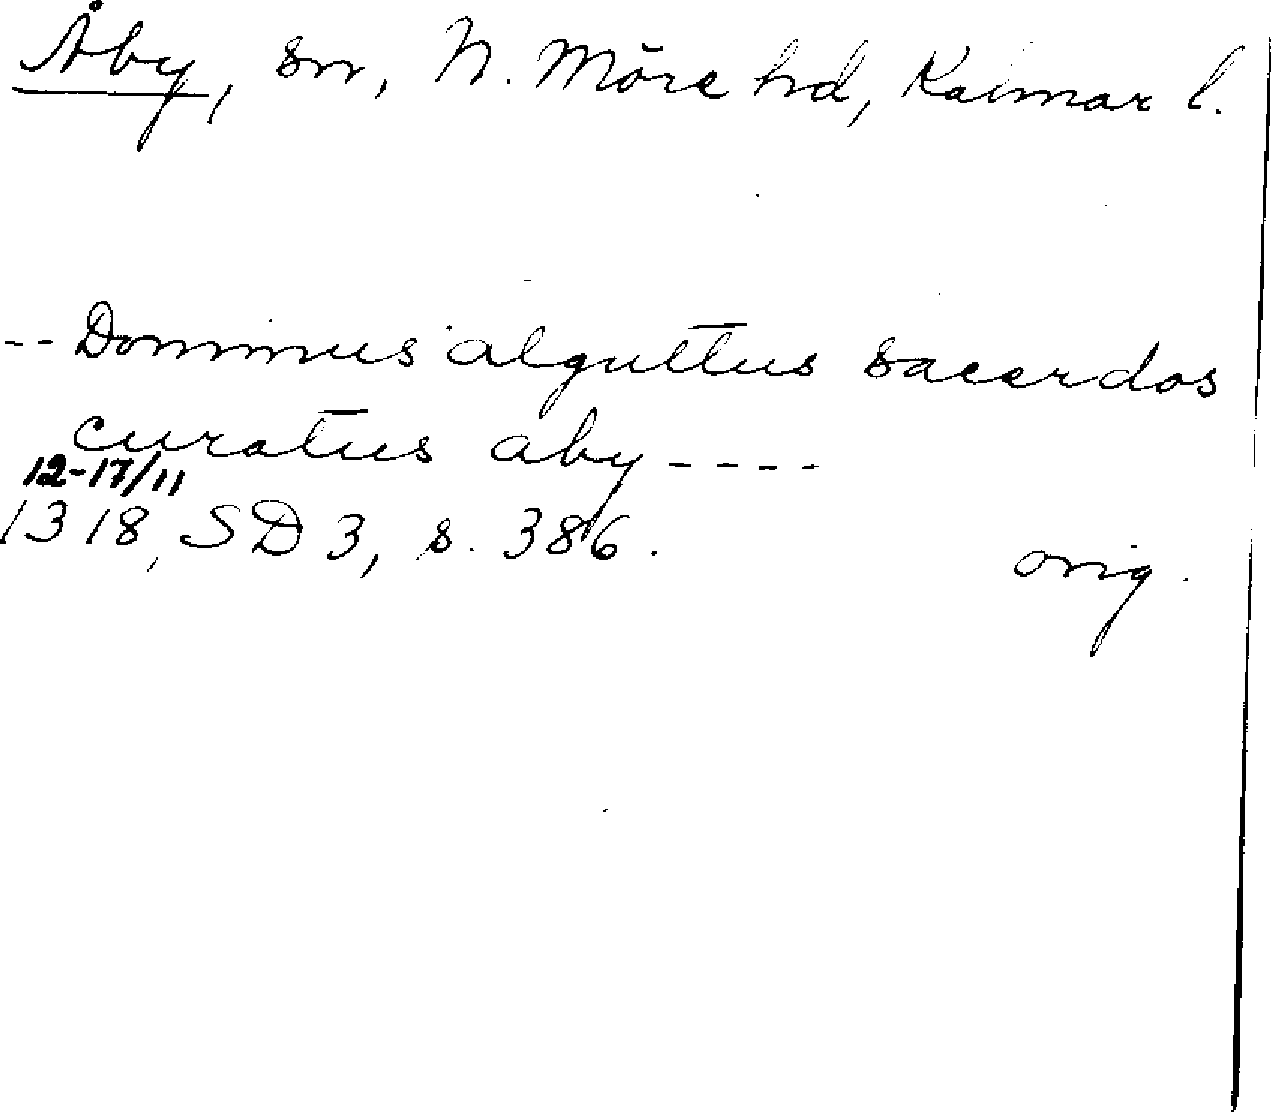 Åby, sn, N. Möre hd, Kalmar l.
-- Dominus alguttus sacerdos
curatus aby ----
12-17/11
1318, SD 3, s. 386.
orig.